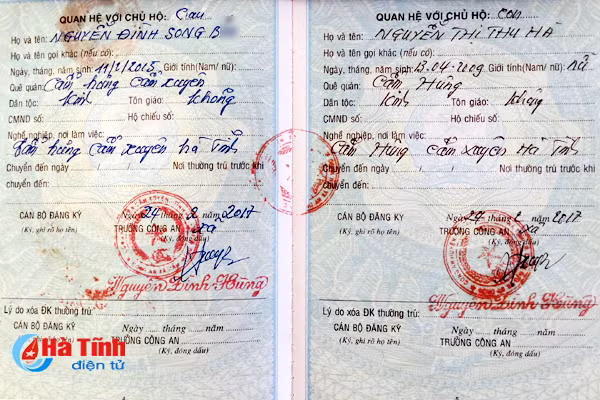 QUAN HỆ VỚI CHỦ HỘ: Cau
Họ và tên: NGUYỄN ĐÌNH SONG B
Họ và tên gọi khác (nếu có):
Ngày, tháng, năm sinh: 11/1/2015 Giới tính(Nam/ nữ):
Quê quán: Cẩm hưng cẩm xuyên
Dân tộc: Kinh Tôn giáo: không
CMND số: Hộ chiếu số:
Nghề nghiệp, nơi làm việc:
Cẩm hưng cẩm xuyên hà Tĩnh
Chuyển đến ngày Nơi thường trú trước khi
chuyển đến:
Ngày 24 tháng 2 năm 2017
CÁN BỘ ĐĂNG KÝ TRƯỞNG CÔNG AN xã
(Ký, ghi rõ họ tên) (Ký, đóng dấu)
Nguyễn Đình Hùng
Lý do xóa ĐK thường trú:
Ngày ..... tháng ..... năm .....
CÁN BỘ ĐĂNG KÝ TRƯỞNG CÔNG AN
(Ký, ghi rõ họ tên) (Ký, đóng dấu)
QUAN HỆ VỚI CHỦ HỘ: con
Họ và tên: NGUYỄN THỊ THU HÀ
Họ và tên gọi khác (nếu có):
Ngày, tháng, năm sinh: 13.04-2009 Giới tính(Nam/ nữ): nữ
Quê quán: Cẩm Hưng
Dân tộc: Kinh Tôn giáo: không
CMND số: Hộ chiếu số:
Nghề nghiệp, nơi làm việc:
Cẩm Hưng cẩm xuyên Hà Tĩnh
Chuyển đến ngày Nơi thường trú trước khi
chuyển đến:
Ngày 24 tháng 2 năm 2017
CÁN BỘ ĐĂNG KÝ TRƯỞNG CÔNG AN xã
(Ký, ghi rõ họ tên) (Ký, đóng dấu)
Nguyễn Đình Hùng
Lý do xóa ĐK thường trú:
Ngày ..... tháng ..... năm .....
CÁN BỘ ĐĂNG KÝ TRƯỞNG CÔNG AN
(Ký, ghi rõ họ tên) (Ký, đóng dấu)
Hà Tĩnh
điện tử